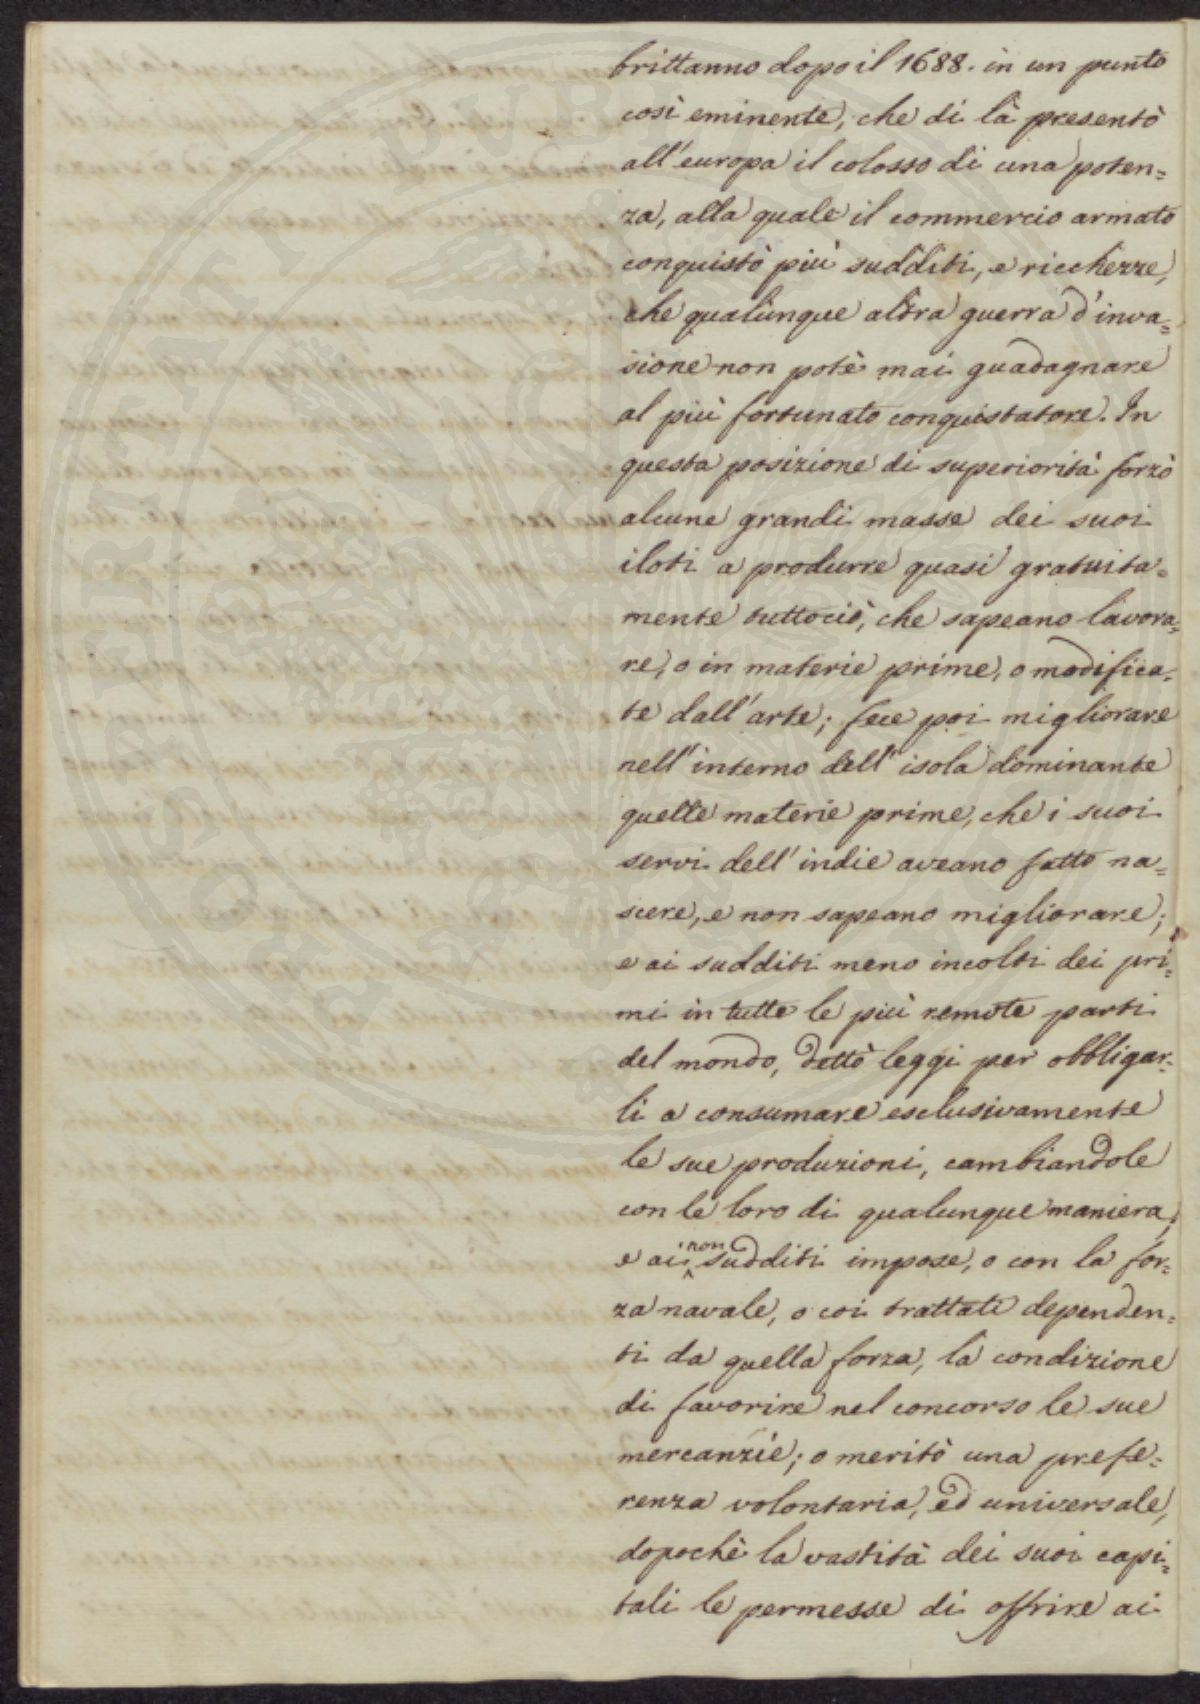 brittanno dopo il 1688. in un punto
così eminente, che di là presentò
all'europa il colosso di una poten=
za, alla quale il commercio armato
conquistò più sudditi, e ricchezze,
che qualunque altra guerra d'inva=
sione non potè mai guadagnare
al più fortunato conquistatore. In
questa posizione di superiorità forzò
alcune grandi masse dei suoi
iloti a produrre quasi gratuita=
mente tuttociò, che sapeano lavora=
re, o in materie prime, o modifica=
te dall'arte; fece poi migliorare
nell'interno dell'isola dominante
quelle materie prime, che i suoi
servi dell'indie aveano fatto na=
scere, e non sapeano migliorare;
e ai sudditi meno incolti dei pri=
mi in tutte le più remote parti
del mondo, dettò leggi per obbligar=
li a consumare esclusivamente
le sue produzioni, cambiandole
con le loro di qualunque maniera;
e ai non sudditi impose, o con la for=
za navale, o coi trattati dependen=
ti da quella forza, la condizione
di favorire nel concorso le sue
mercanzie; o meritò una prefe=
renza volontaria, ed universale,
dopochè la vastità dei suoi capi=
tali le permesse di offrire ai